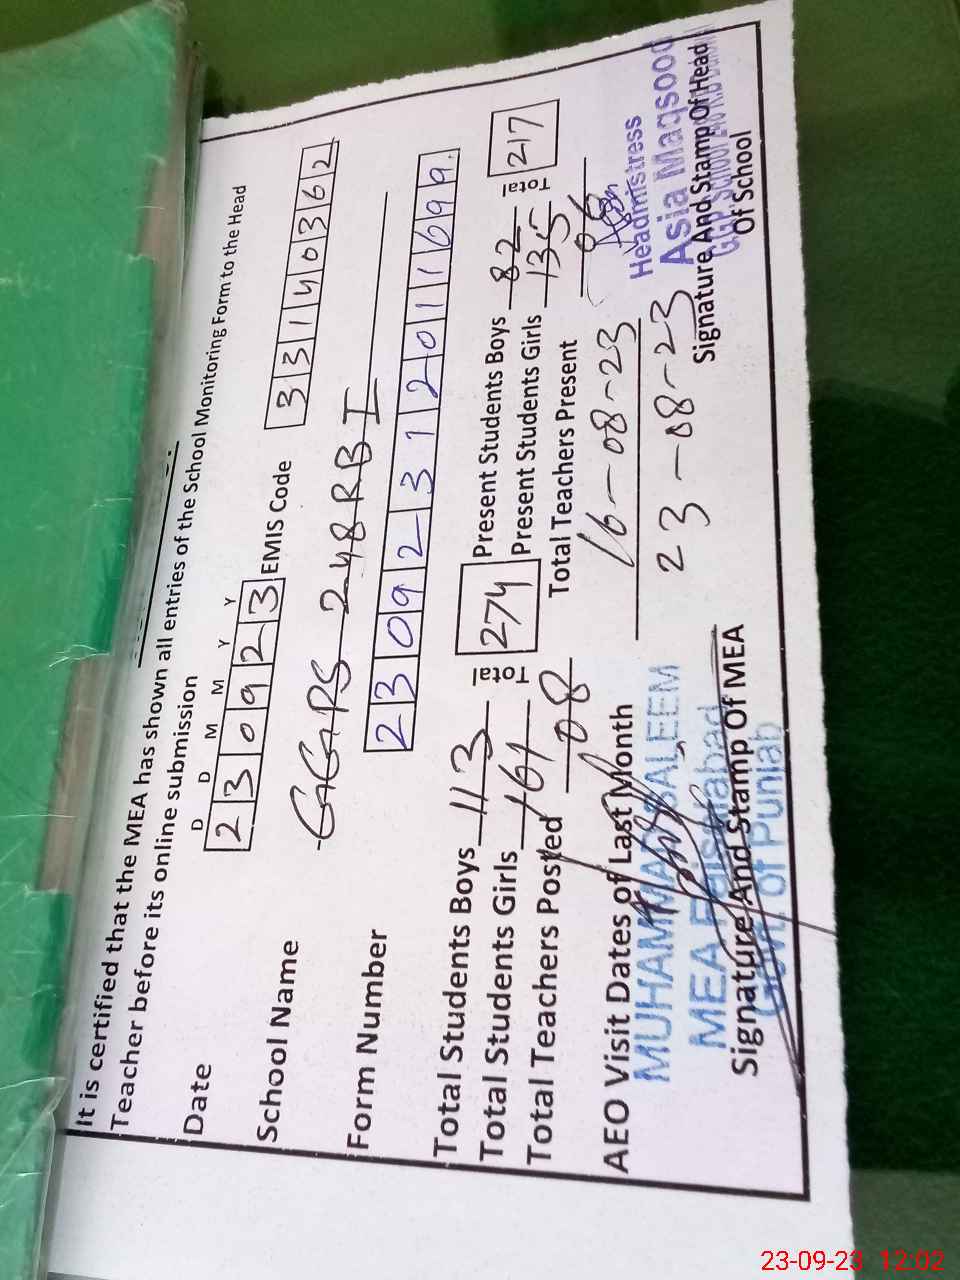 It is certified that the MEA has shown all entries of the School Monitoring Form to the Head
Teacher before its online submission
D D M M Y Y
Date 230923 EMIS Code 33140362
School Name GGPS 248 RB I
Form Number 23092312011699
Total Students Boys 113 Total 274 Present Students Boys 82 Total 217
Total Students Girls 161 Present Students Girls 135
Total Teachers Posted 08 Total Teachers Present 06
AEO Visit Dates of Last Month 16-08-23
23-08-23
MUHAMMAD SALEEM
MEA Faisalabad
Govt. of Punjab
Signature And Stamp Of MEA
Headmistress
Asia Maqsood
Signature And Stamp Of Head
Of School
23-09-23 12:02